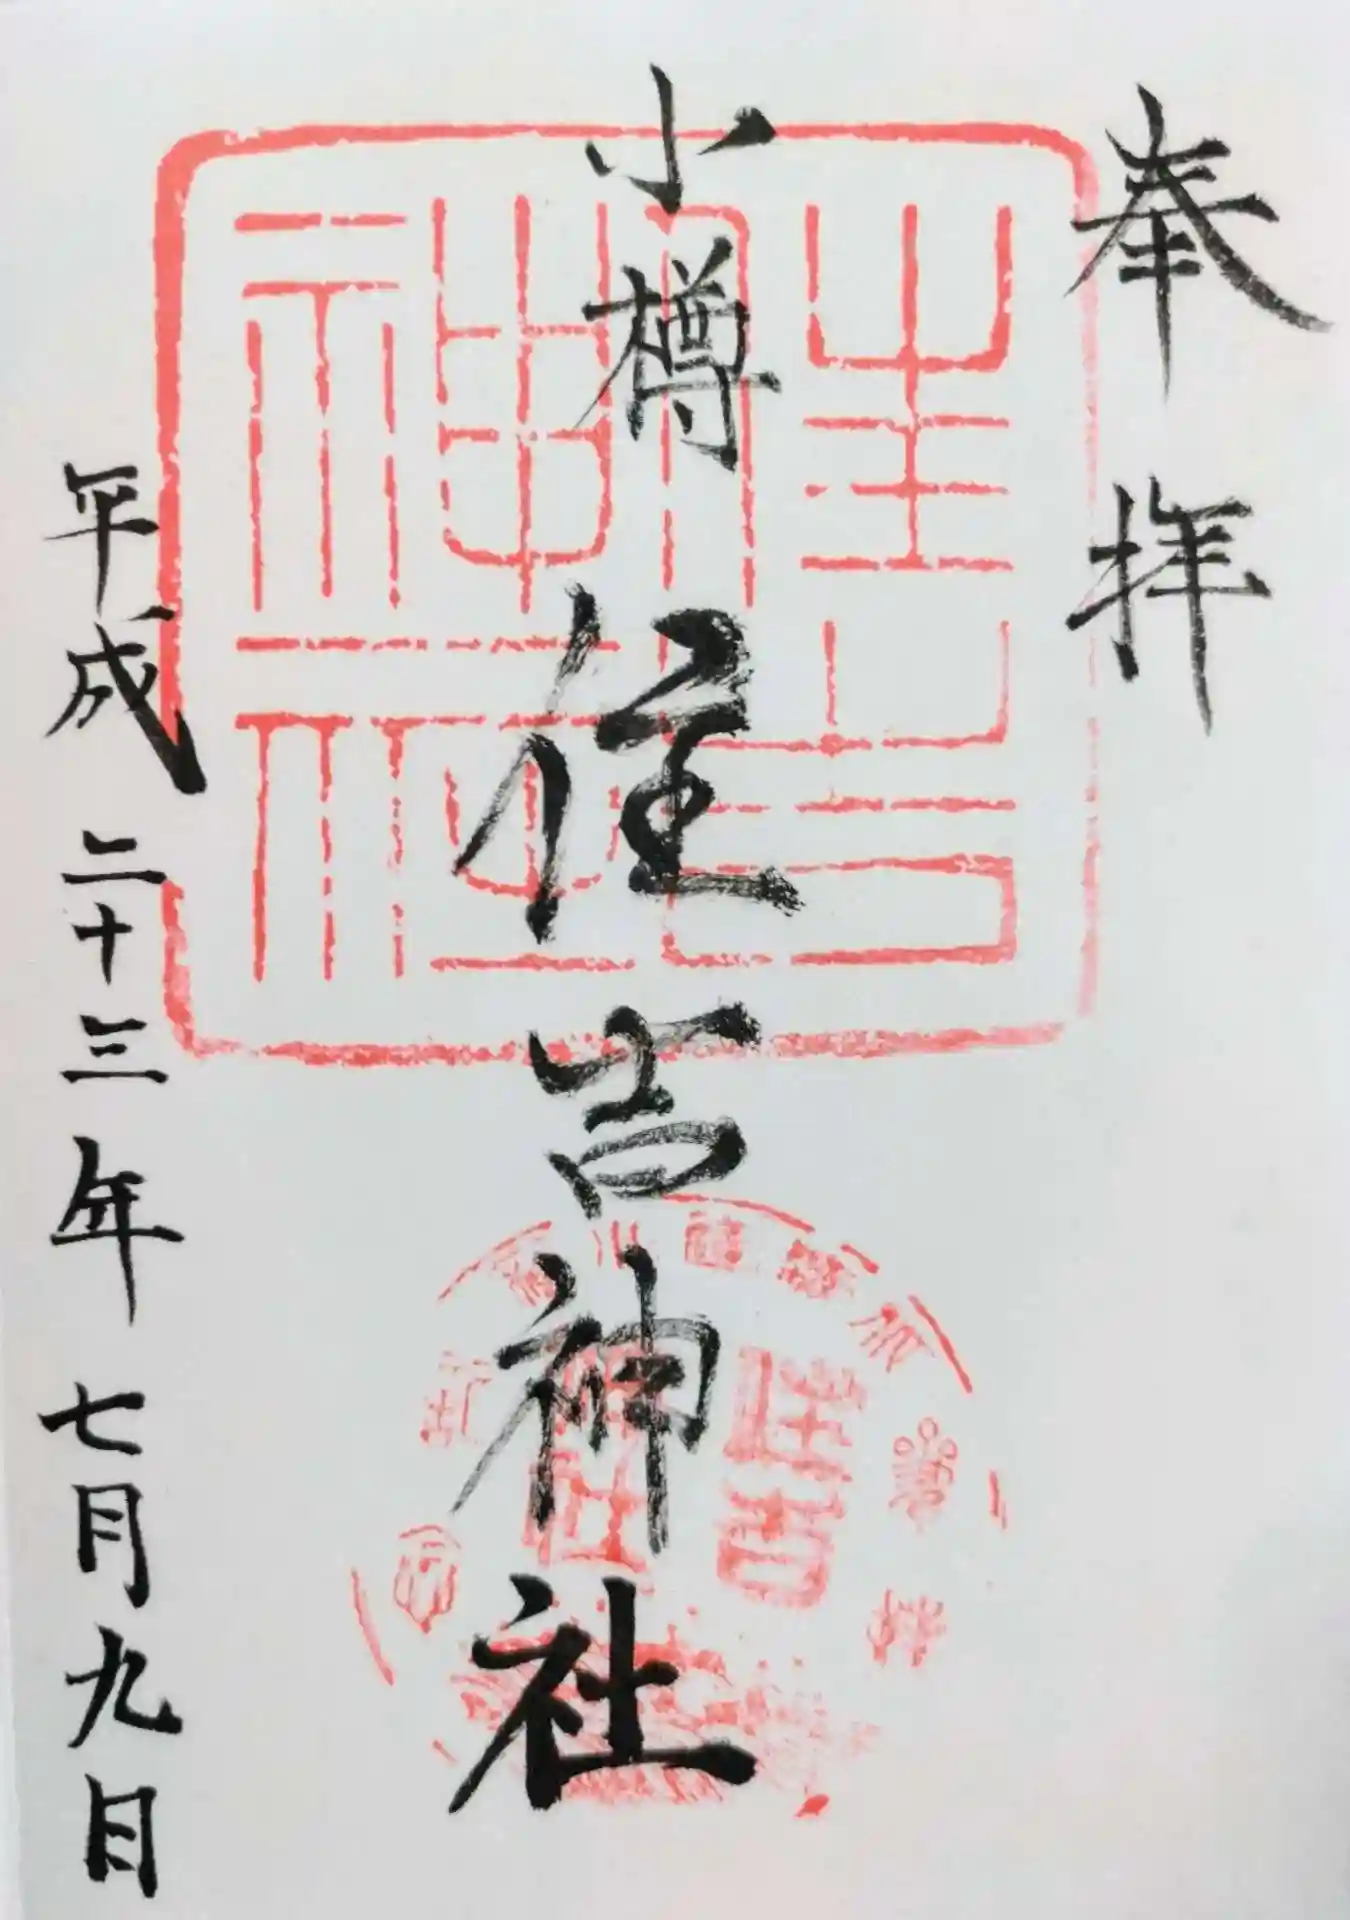 奉拝
小樽
住吉神社
平成二十三年七月九日
住吉神社
住吉
神社